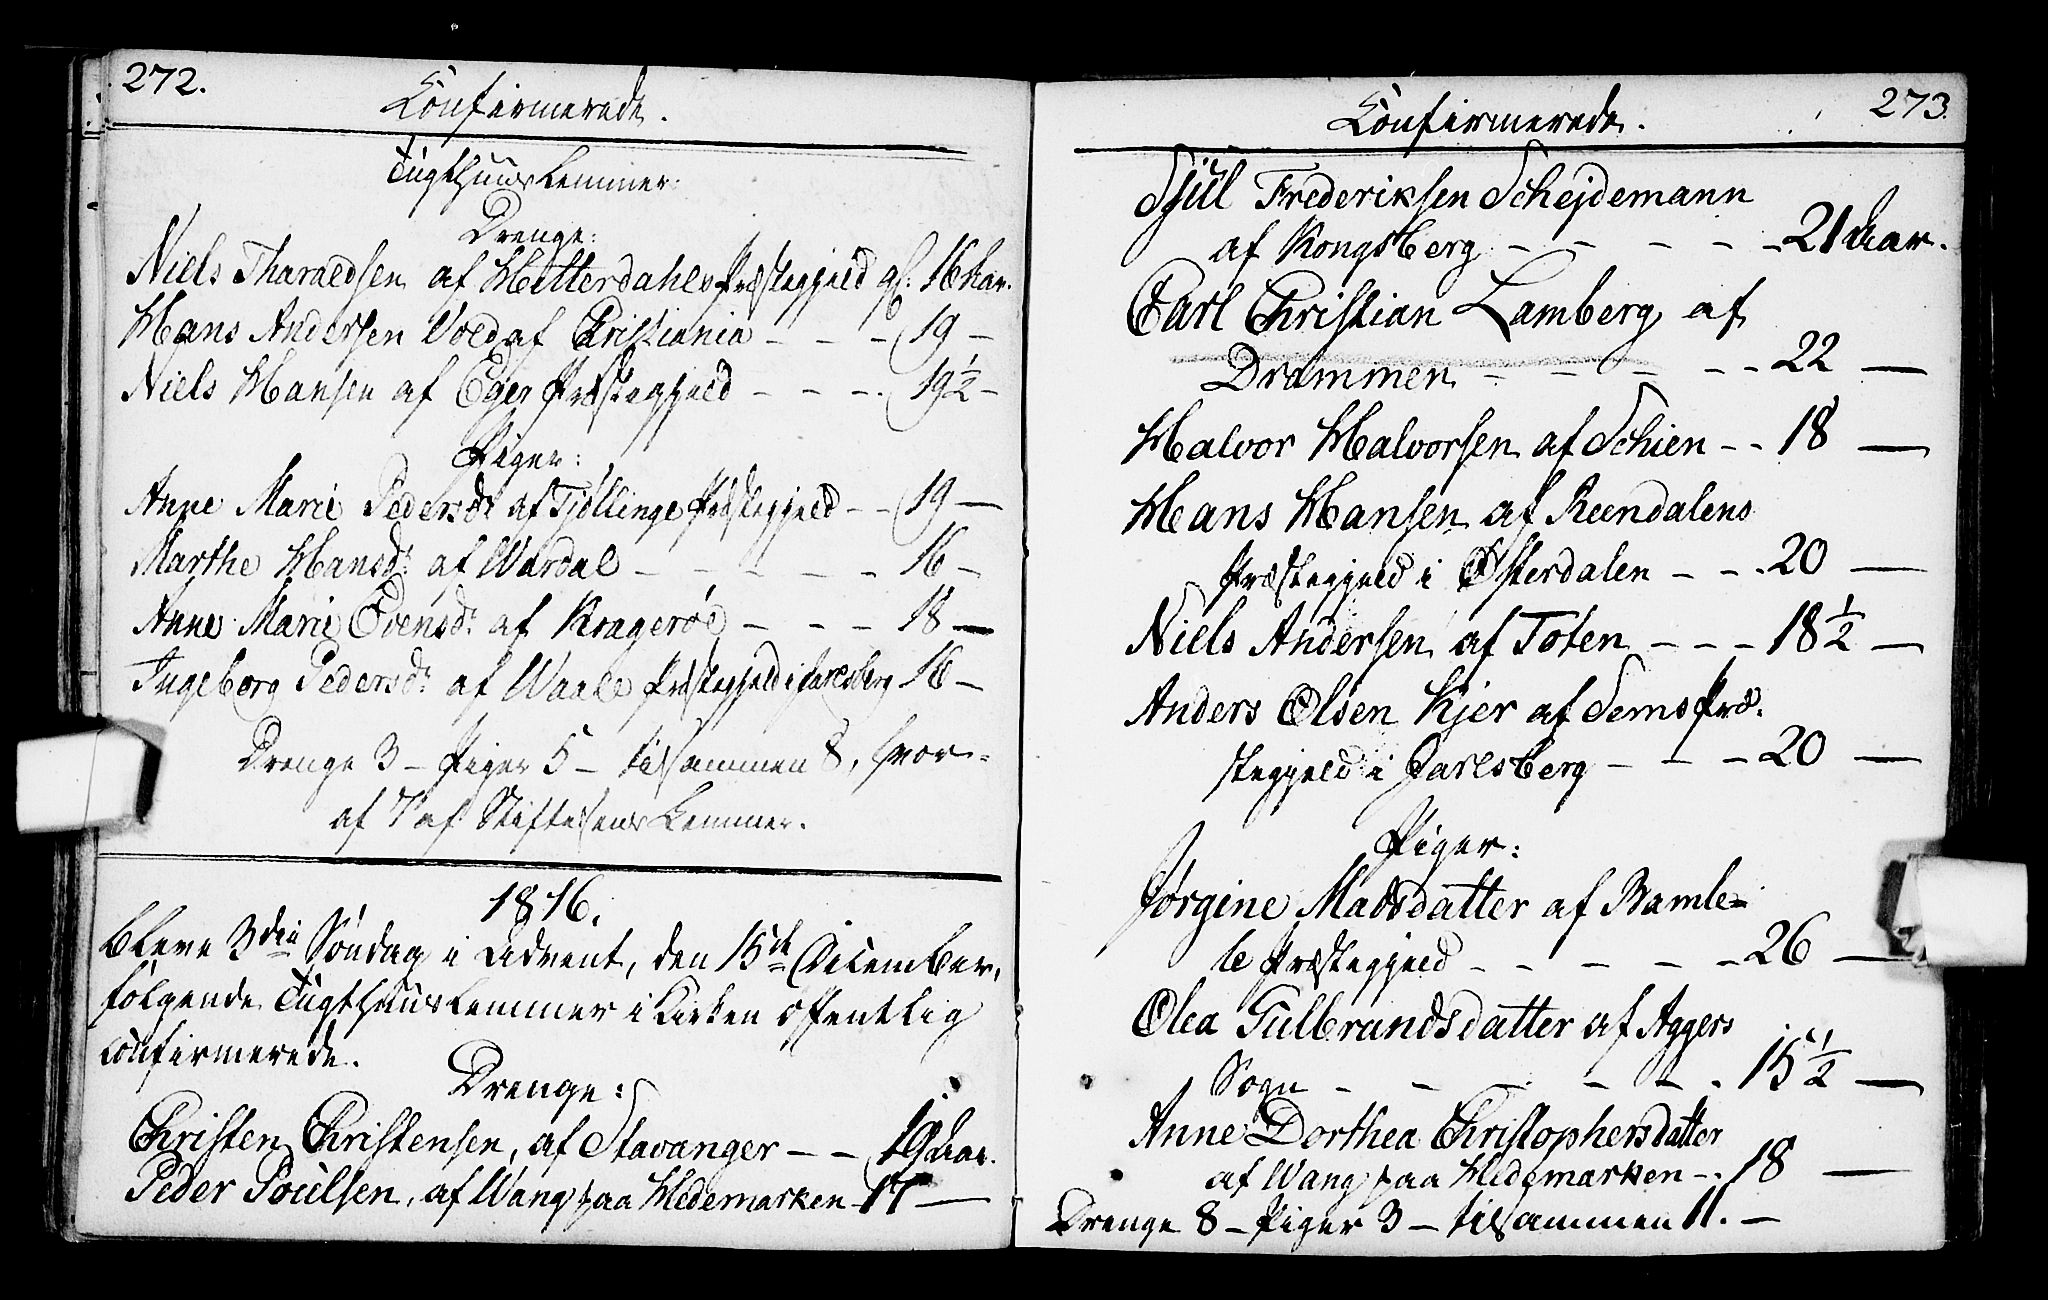 272.
Confirmerede.
Tugthuus Lemmer:
Drenge:
Niels Tharaldsen af Hitterdahls Præstegjeld gl. 16 Aar.
Hans Andersen Vold af Christiania - - - 19 -
Niels Hansen af Eger Præstegjeld - - - 19½ -
Piger:
Anne Marie Pedersdr. af Tjöllinge Præstegjeld - - 19 -
Marthe Hansdr. af Wardal - - - - - 16 -
Anne Marie Evensdr. af Kragerøe - - - 18 -
Ingeborg Pedersdr. af Waale Præstegjeld i Jarlsberg 16 -
Drenge 3 - Piger 5 - tilsammen 8, hvor-
af 7 af Stiftelsens Lemmer.
1816.
Bleve 3die Søndag i Advent, den 15de December,
følgende Tugthuus Lemmer i Kirken offentlig
confirmerede.
Drenge:
Christen Christensen, af Stavanger - - 19 Aar.
Peder Poulsen, af Wang paa Hedemarken - 17 -
273.
Confirmerede.
Sjül Frederiksen Schejdemann
af Kongsberg - - - - - 21 Aar.
Carl Christian Lamberg af
Drammen - - - - - 22 -
Halvor Halvorsen af Schien - - 18 -
Hans Hansen af Reendalens
Præstegjeld i Østerdalen - - - 20 -
Niels Andersen af Toten - - - 18½ -
Anders Olsen Kjer af Sems Præ-
stegjeld i Jarlsberg - - - 20 -
Piger:
Jørgine Madsdatter af Bamle-
le Præstegjeld - - - - - 26 -
Olea Gulbrandsdatter af Aggers
Sogn - - - - - 15½ -
Anne Dorthea Christophersdatter
af Wang paa Hedemarken - . 18 -
Drenge 8 - Piger 3 - tilsammen 11. -